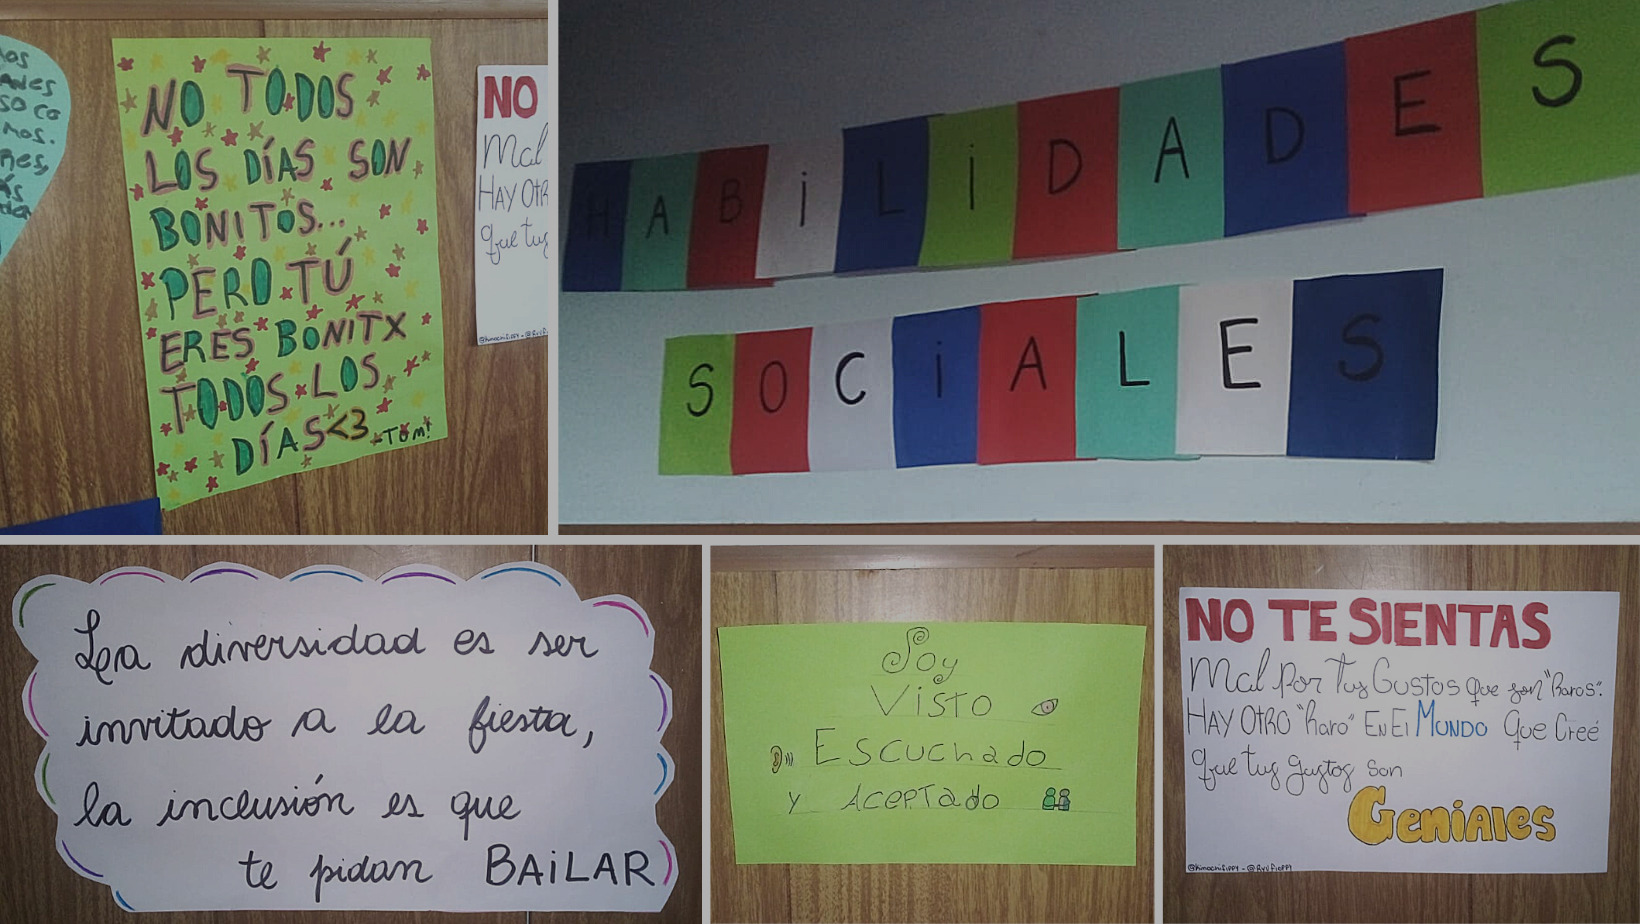 NO TODOS
LOS DÍAS SON
BONITOS...
PERO TÚ
ERES BONITX
TODOS LOS
DÍAS<3 -TOM!
NO
Mal
HAY OTR
que tus
HABiLiDADES
SOCiALES
La diversidad es ser
invitado a la fiesta,
la inclusión es que
te pidan BAiLAR
Soy
Visto
Escuchado
y Aceptado
NO TE SIENTAS
Mal Por Tus Gustos que son "Raros".
HAY OTRO "Raro" EN El MUNDO Que Creé
que tus gustos son
GeniAles